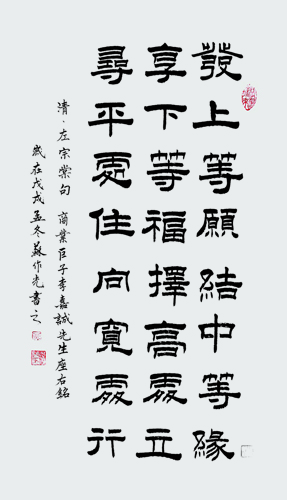 發上等願結中等緣
享下等福擇高處立
尋平處住向寬處行
清·左宗棠句 商業巨子李嘉誠先生座右銘
歲在戊戌孟冬蘇作光書之